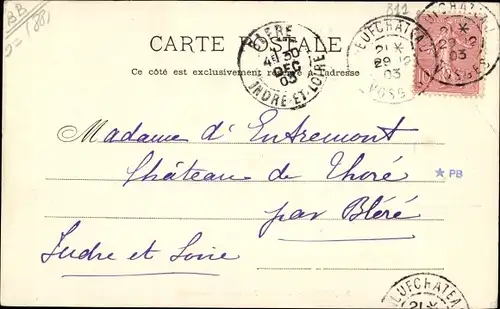 BB
811
CARTE POSTALE
Ce côté est exclusivement réservé à l'adresse
BLERE
4E 30
DEC
03
INDRE-ET-LOIRE
NEUFCHATEAU
21 *
29 12
03
VOSGES
NEUFCHATEAU
21 *
29
03
VOSGES
Madame d'Entremont
Château de Thoré
★ PB
par Bléré
Indre et Loire
NEUFCHATEAU
21 *